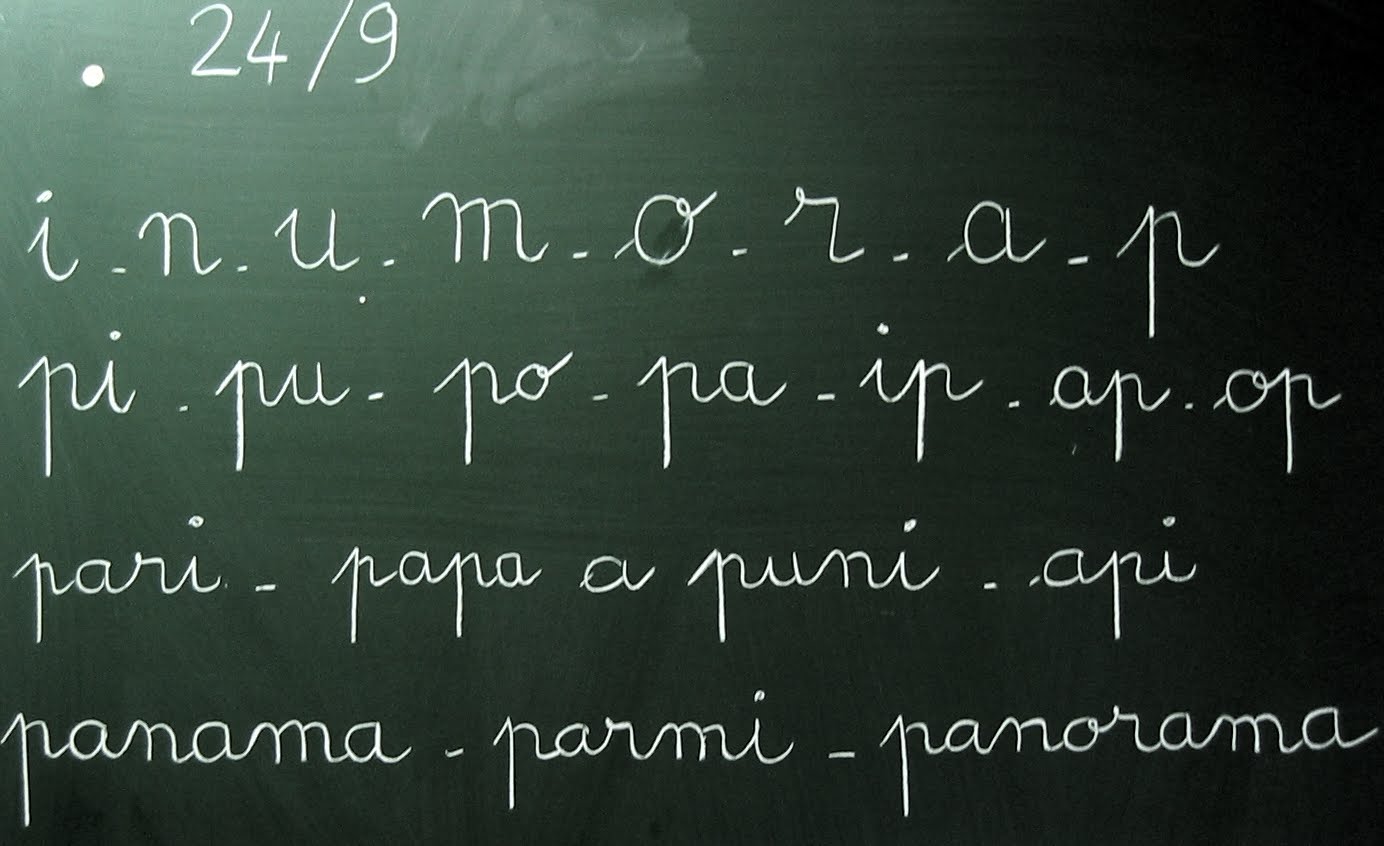 . 24/9
i - n - u - m - o - r - a - p
pi - pu - po - pa - ip - ap - op
pari - papa a puni - api
panama - parmi - panorama